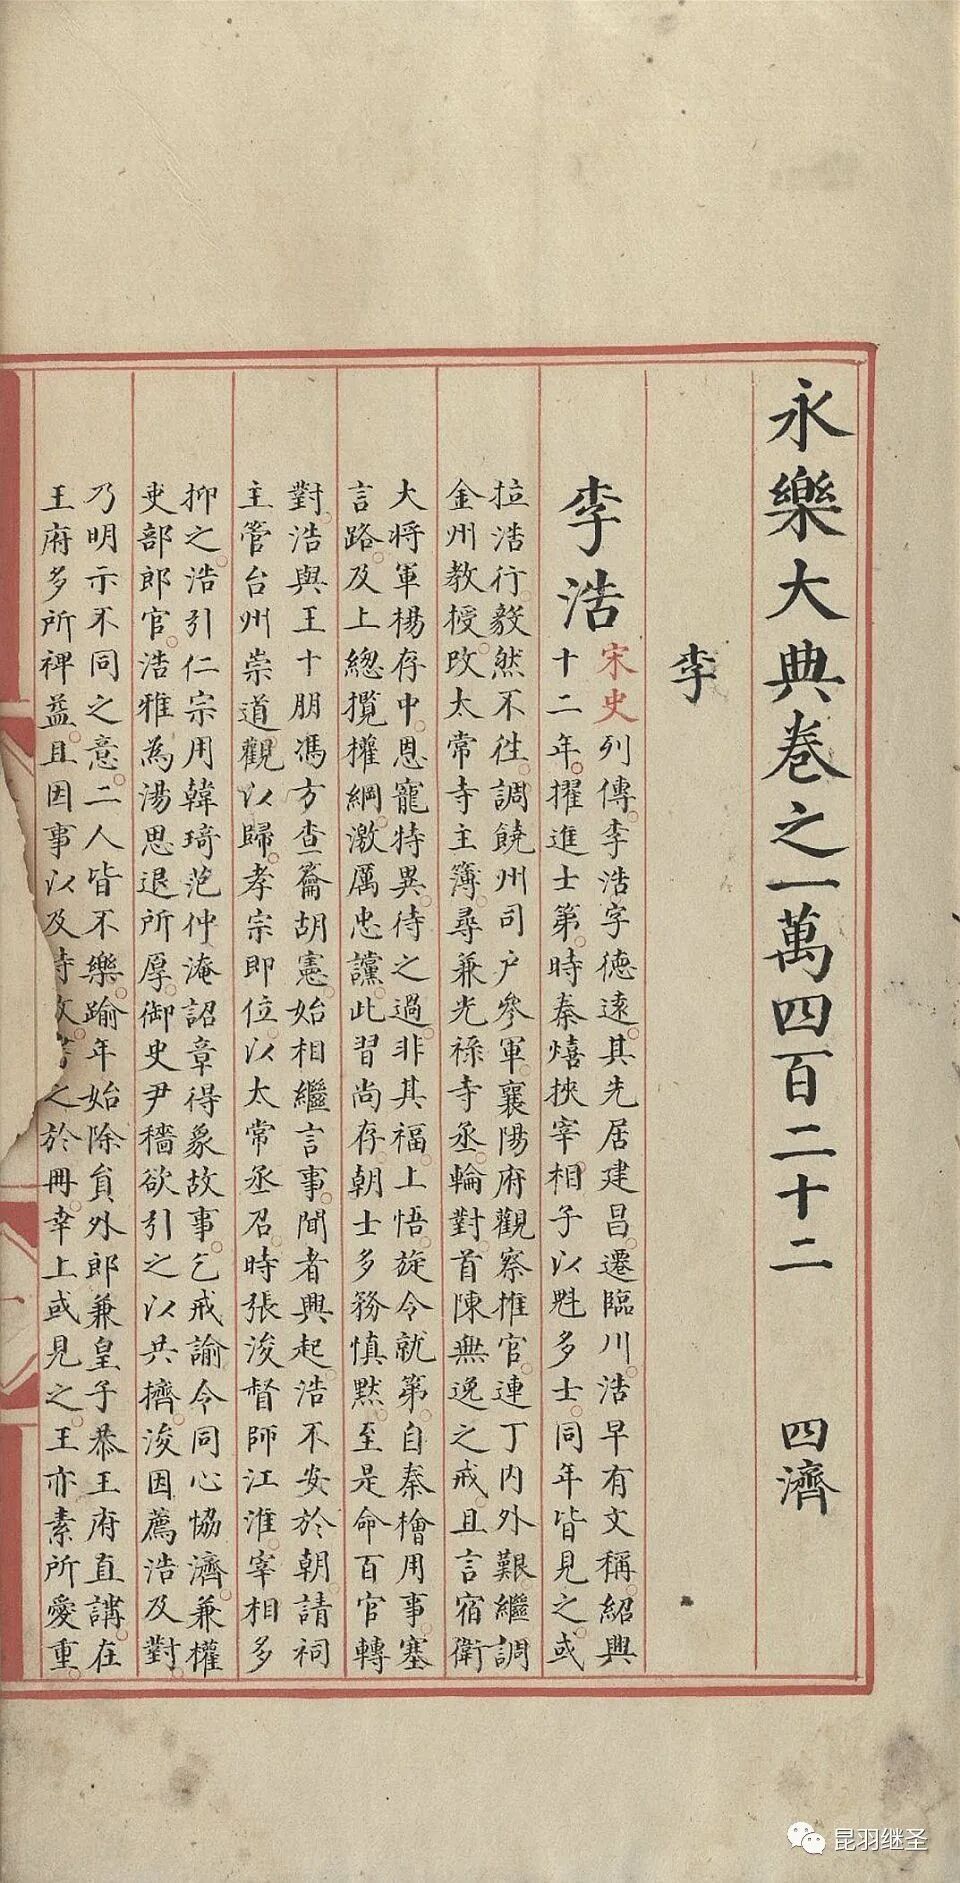 永樂大典卷之一萬四百二十二 四濟
李
李浩
宋史列傳李浩字德遠其先居建昌遷臨川浩早有文稱紹興
十二年擢進士第時秦熺挾宰相子以魁多士同年皆見之或
拉浩行毅然不往調饒州司户參軍襄陽府觀察推官連丁内外艱繼調
金州教授改太常寺主簿尋兼光祿寺丞輪對首陳無逸之戒且言宿衛
大將軍楊存中恩寵特異待之過非其福上悟旋令就第自秦檜用事塞
言路及上總攬權綱激厲忠讜此習尚存朝士多務慎黙至是命百官轉
對浩與王十朋馮方查籥胡憲始相繼言事間者興起浩不安於朝請祠
主管台州崇道觀以歸孝宗即位以太常丞召時張浚督師江淮宰相多
抑之浩引仁宗用韓琦范仲淹詔章得象故事乞戒諭令同心協濟兼權
吏部郎官浩雅為湯思退所厚御史尹穡欲引之以共擠浚因薦浩及對
乃明示不同之意二人皆不樂踰年始除貟外郎兼皇子恭王府直講在
王府多所裨益且因事以及時之於冊幸上或見之王亦素所愛重
昆羽继圣